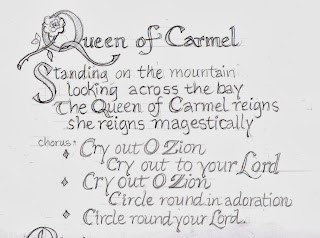 Queen of Carmel
Standing on the mountain
looking across the bay
The Queen of Carmel reigns
she reigns magestically
chorus: Cry out O Zion
Cry out to your Lord
Cry out O Zion
Circle round in adoration
Circle round your Lord.